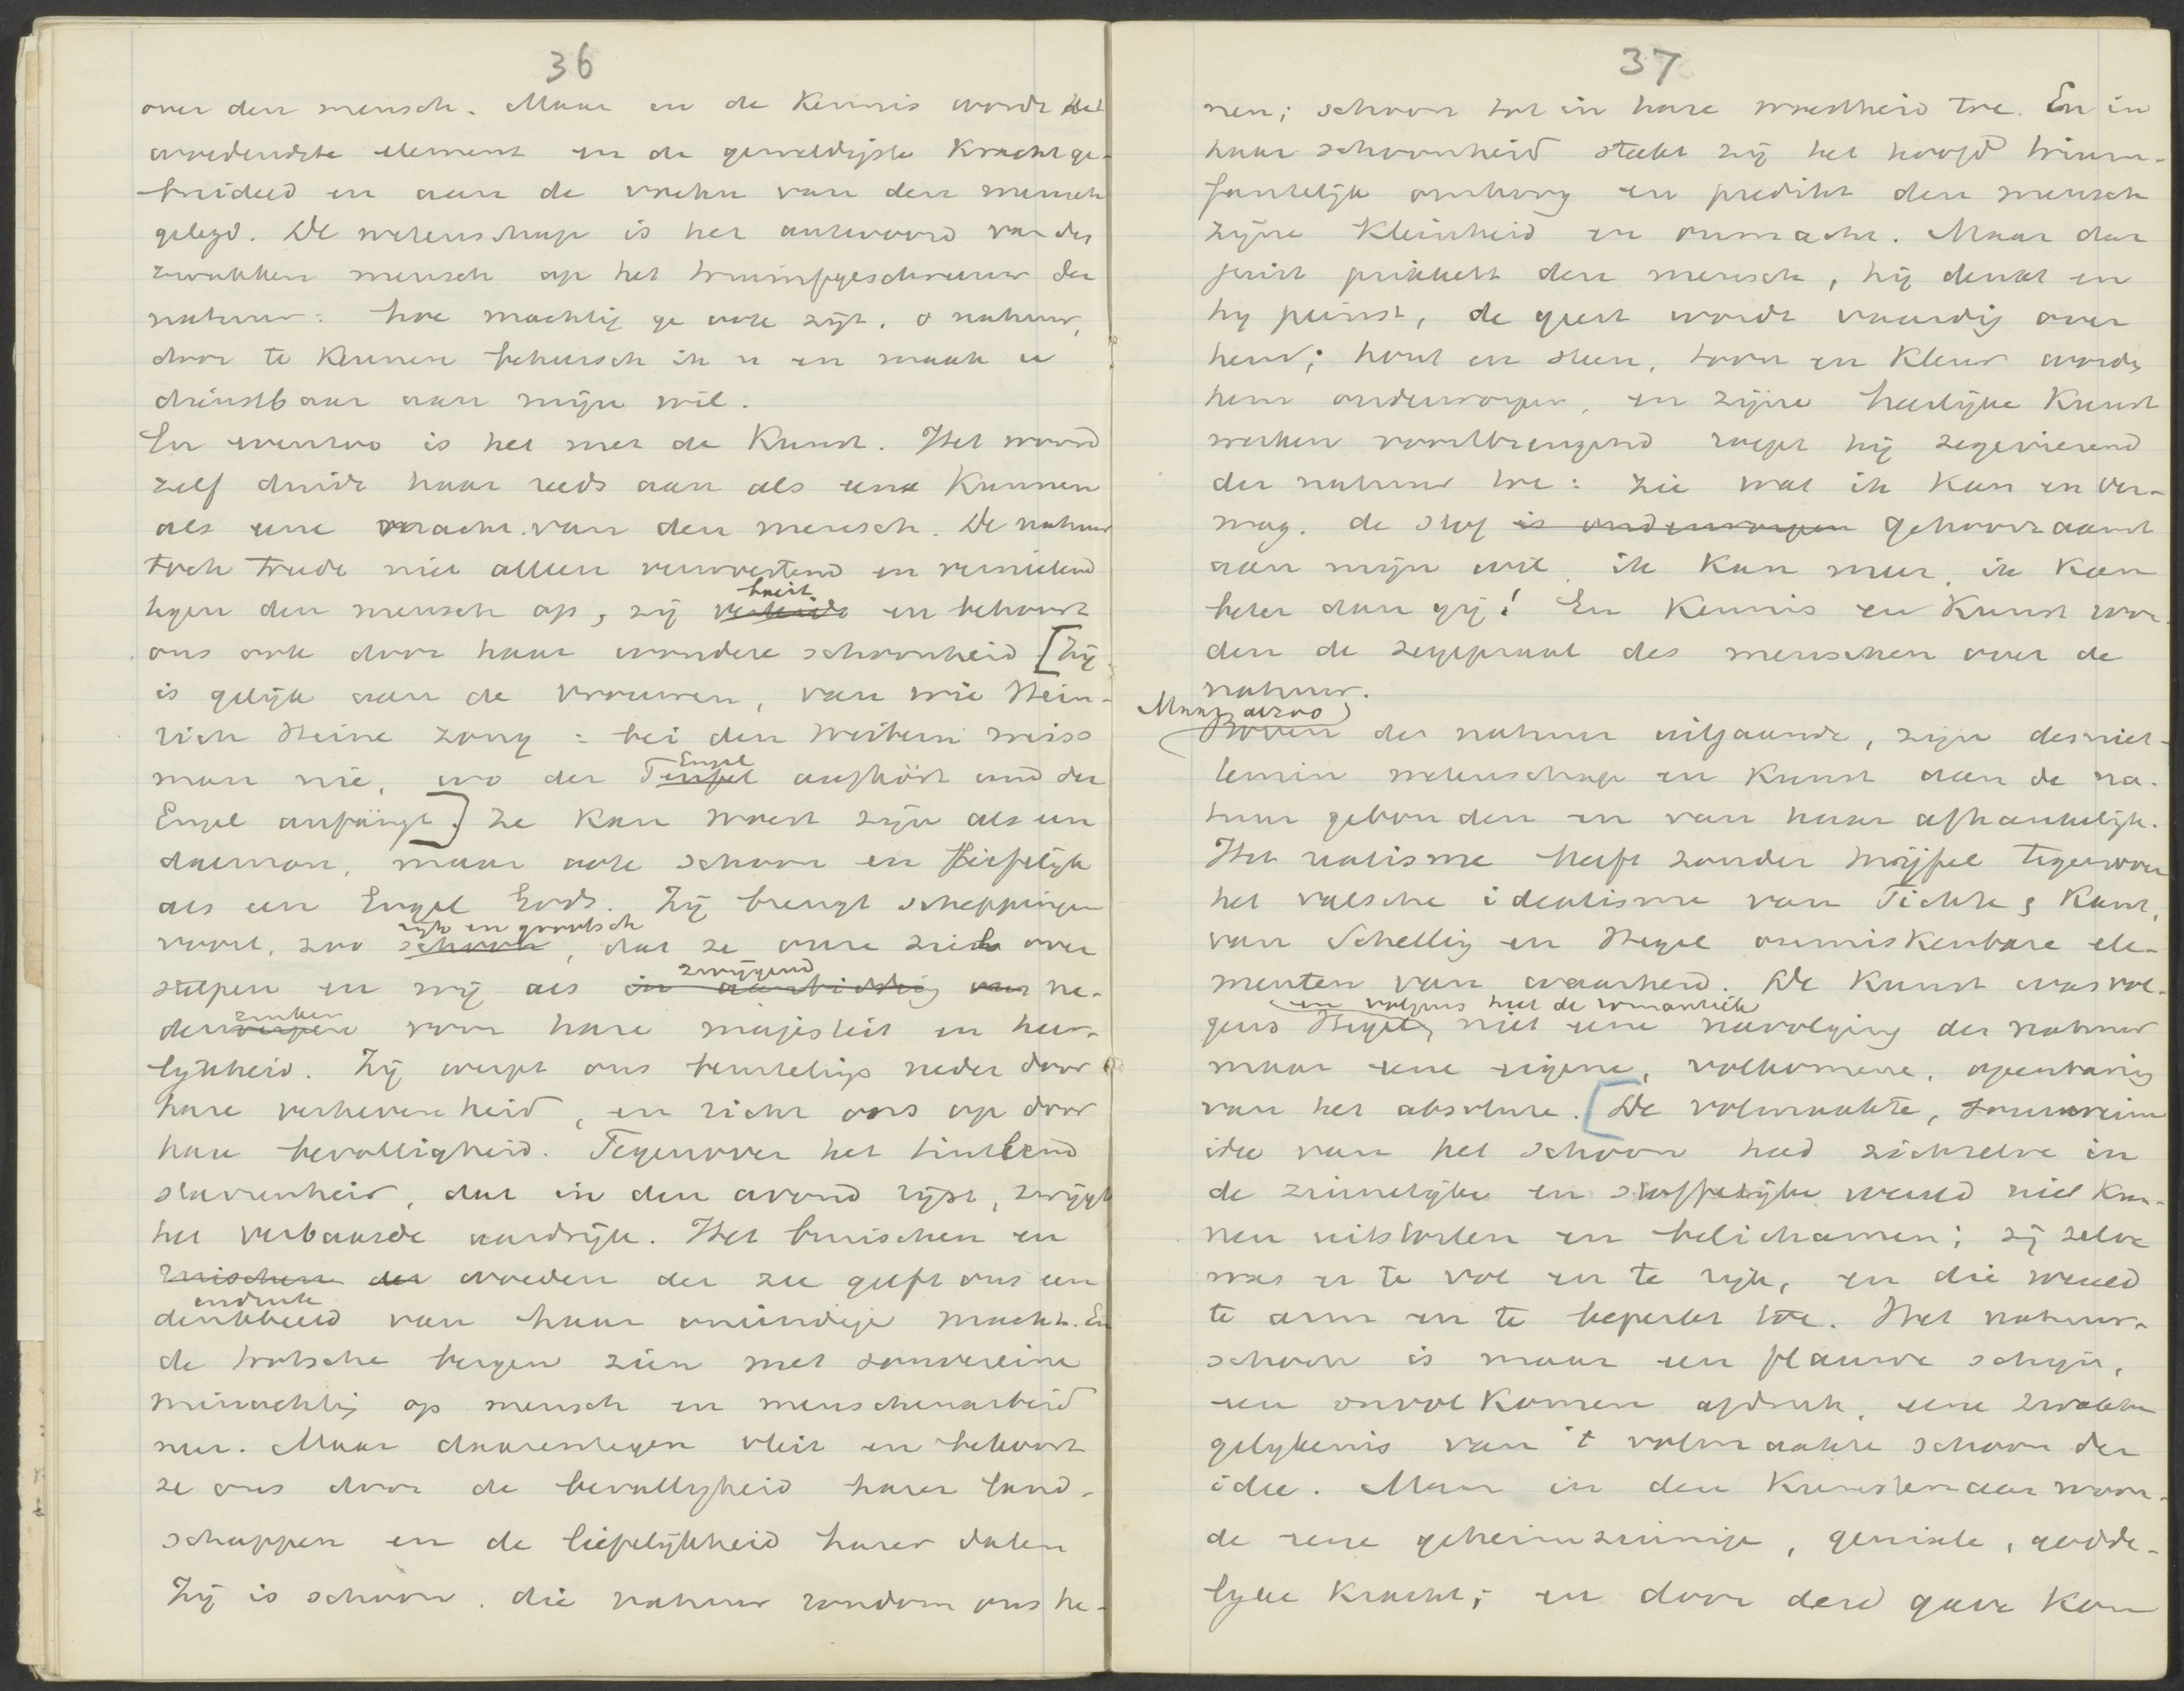 36
over den mensch. Maar in de Kennis wordt het
woedendste element en de geweldigste Kracht ge-
breideld en aan de voeten van den mensch
gelegd. De wetenschap is het antwoord van den
zwakken mensch op het triumfgeschreeuw der
natuur: hoe machtig ge ook zijt, o natuur,
door te Kennen beheersch ik u en maak u
dienstbaar aan mijn wil.
En evenzoo is het met de Kunst. Het woord
zelf duidt haar reeds aan als een Kunnen
als eene macht van den mensch. De natuur
toch treedt niet alleen verwoestend en vernielend
tegen den mensch op, zij verleidt en bekoort
boeit
ons ook door haar wondere schoonheid [Zij
is gelijk aan de vrouwen, van wie Hein-
rich Heine zong: bei den Weibern weiss
man nie, wo der Teufel aufhört und der
Engel
Engel anfängt.] Ze Kan woest zijn als een
daemon, maar ook schoon en liefelijk
als een Engel Gods. Zij brengt scheppingen
voort, zoo schoon, dat ze onze ziel over
rijk en grootsch
stelpen en wij als in aanbidding ons ne-
zwijgend
derwerpen voor hare majesteit en heer-
zinken
lijkheid. Zij werpt ons beurtelings neder door
hare verhevenheid, en richt ons op door
hare bevalligheid. Tegenover het tintlend
starrenheir, dat in den avond rijst, zwijgt
het verbaasde aardrijk. Het bruischen en
bruischen der woeden der zee geeft ons een
denkbeeld van haar oneindige macht. En
indruk
de trotsche bergen zien met souvereine
minachting op mensch en menschenarbeid
neer. Maar daarentegen vleit en bekoort
ze ons door de bevalligheid harer land-
schappen en de liefelijkheid harer dalen
Zij is schoon, die natuur rondom ons he-
37
nen; schoon tot in hare woestheid toe. En in
haar schoonheid steekt zij het hoofd trium-
fantelijk omhoog en predikt den mensch
zijne Kleinheid en onmacht. Maar dat
juist prikkelt den mensch, hij denkt en
hij peinst, de geest wordt vaardig over
hem; hout en steen, toon en Kleur wordt
hem onderworpen, en zijne heerlijke Kunst
werken voortbrengend roept hij zegevierend
der natuur toe: zie wat ik Kan en ver-
mag. de stof is onderworpen gehoorzaamt
aan mijn wil, ik Kan meer, ik Kan
beter dan gij! En Kennis en Kunst wor-
den de zegepraal des menschen over de
natuur.
Maar alzoo
Boven der natuur uitgaande, zijn desniet-
temin wetenschap en Kunst aan de na-
tuur gebonden en van haar afhankelijk.
Het realisme heeft zonder twijfel tegenover
het valsche idealisme van Fichte & Kant,
van Schelling en Hegel onmiskenbare ele-
menten van waarheid. De Kunst was vol-
gens Hegel, niet eene navolging der natuur
en volgens heel de romantiek
maar eene eigene, volkomene, openbaring
van het absolute. [De volmaakte, souvereine
idee van het schoon had zichzelve in
de zinnelijke en stoffelijke wereld niet Kun-
nen uitstorten en belichamen; zij zelve
was er te vol en te rijk, en die wereld
te arm en te beperkt toe. Het natuur-
schoon is maar een flauwe schijn,
een onvolkomen afdruk, eene zwakke
gelijkenis van 't volmaakte schoon der
idee. Maar in den Kunstenaar woon-
de eene geheimzinnige, geniale, godde-
lijke Kracht; en door deze gave Kon